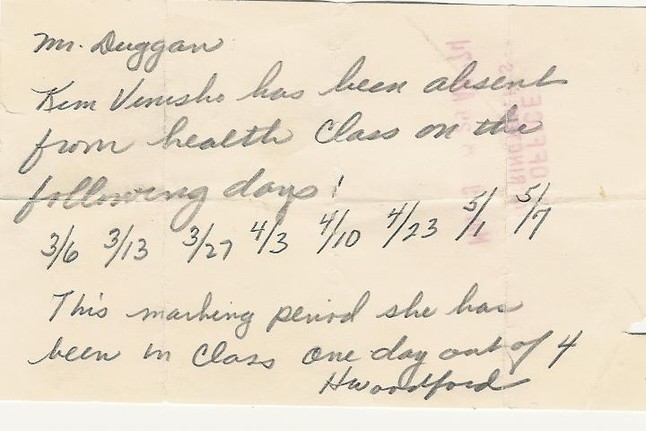 Mr. Duggan
Kim Venisho has been absent
from health Class on the
following days!
3/6 3/13 3/27 4/3 4/10 4/23 5/1 5/7
This marking period she has
been in Class one day out of 4
HWoodford
OFFICE